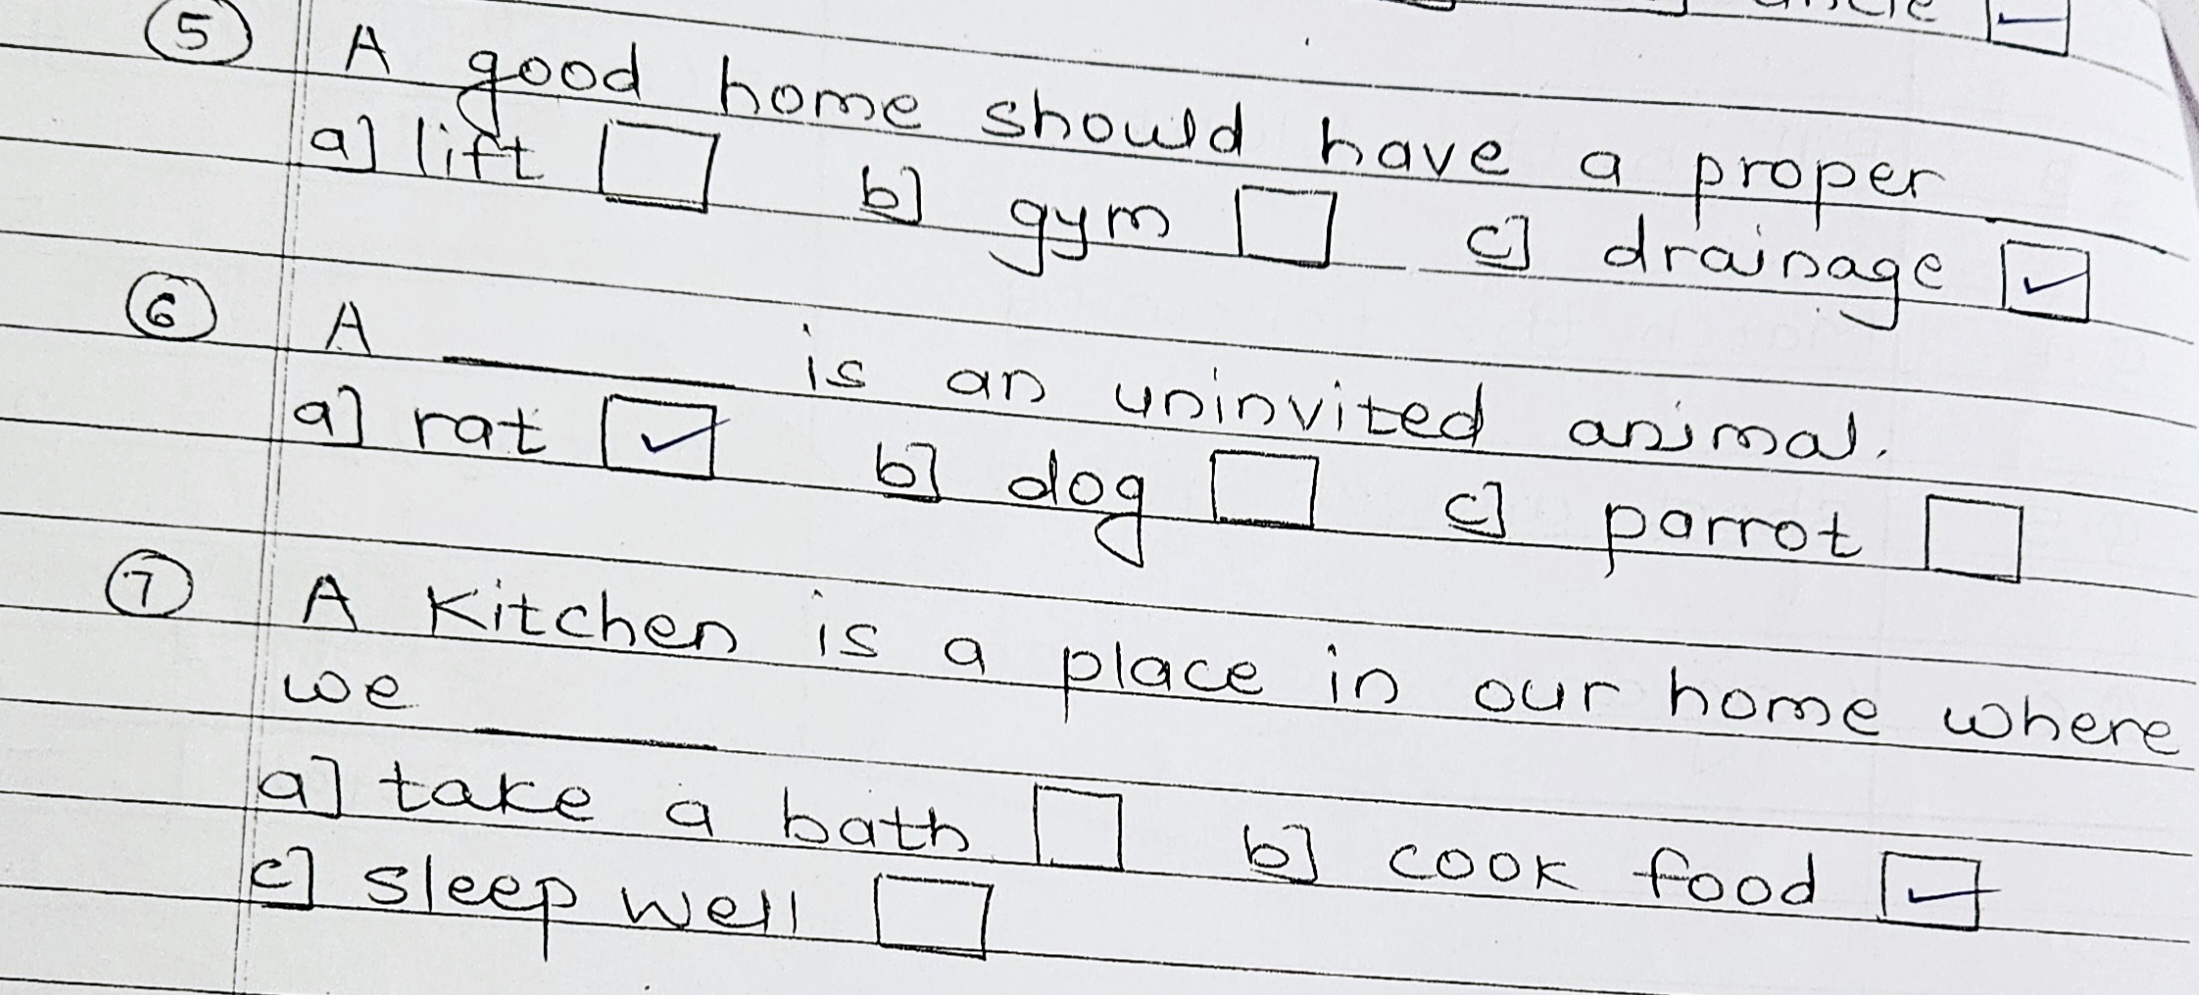 uncle ☑
⑤ A good home should have a proper ____
a] lift ☐ b] gym ☐ c] drainage ☑
⑥ A ____ is an uninvited animal.
a] rat ☑ b] dog ☐ c] parrot ☐
⑦ A Kitchen is a place in our home where
we ____
a] take a bath ☐ b] cook food ☑
c] sleep well ☐